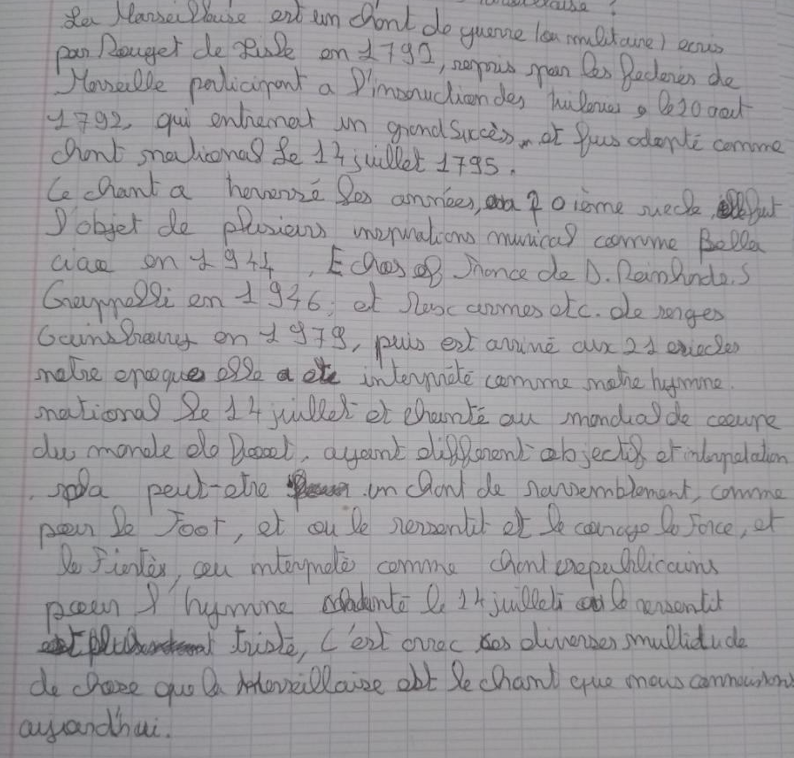 La Marseillaise est un chant de guerre (ou militaire) ecris
par Rouget de Lisle en 1792, repris par les federés de
Marseille participant a l'insrruction des tuileries, le 10 aout
1792, qui entrenat un grand succès, et fus adopté comme
chant national le 14 juillet 1795.
Ce chant a traversé les années, au 20 ième siecle, fut
l'objet de plusieurs inspirations musical comme Bella
ciao en 1944, Echos of France de D. Reinhnde, S
Grappelli en 1946, et aux armes etc. de serges
Gainsbourg en 1979, puis est arrivé aux 21 siecles
notre epoque elle a ete interprété comme notre hymne
national le 14 juillet et chanté au mondial de coupe
du monde de Foot, ayant different objectif et interpelation
, peut-etre un chant de rassemblement, comme
pour le Foot, et ou le ressentit et le courage la Force, et
la Fiertés, ou interpreté comme chant republicains
pour l'hymne chanté le 14 juillet ou le ressentit
triste, C'est avec ces diverses multidude
de chose que la Merveillaise est le chant que nous connaissons
aujourd'hui.